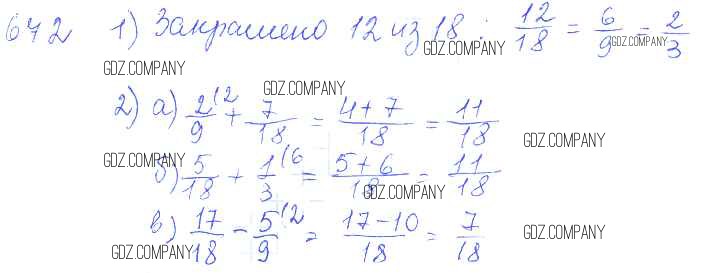 672 1) Закрашено 12 из 18 : 12/18 = 6/9 = 2/3
GDZ.COMPANY GDZ.COMPANY GDZ.COMPANY
GDZ.COMPANY
2) а) 2/9 (2 + 7/18 = 4+7/18 = 11/18
GDZ.COMPANY
б) 5/18 + 1/3 (6 = 5+6/18 = 11/18
GDZ.COMPANY GDZ.COMPANY
в) 17/18 - 5/9 (2 = 17-10/18 = 7/18
GDZ.COMPANY GDZ.COMPANY